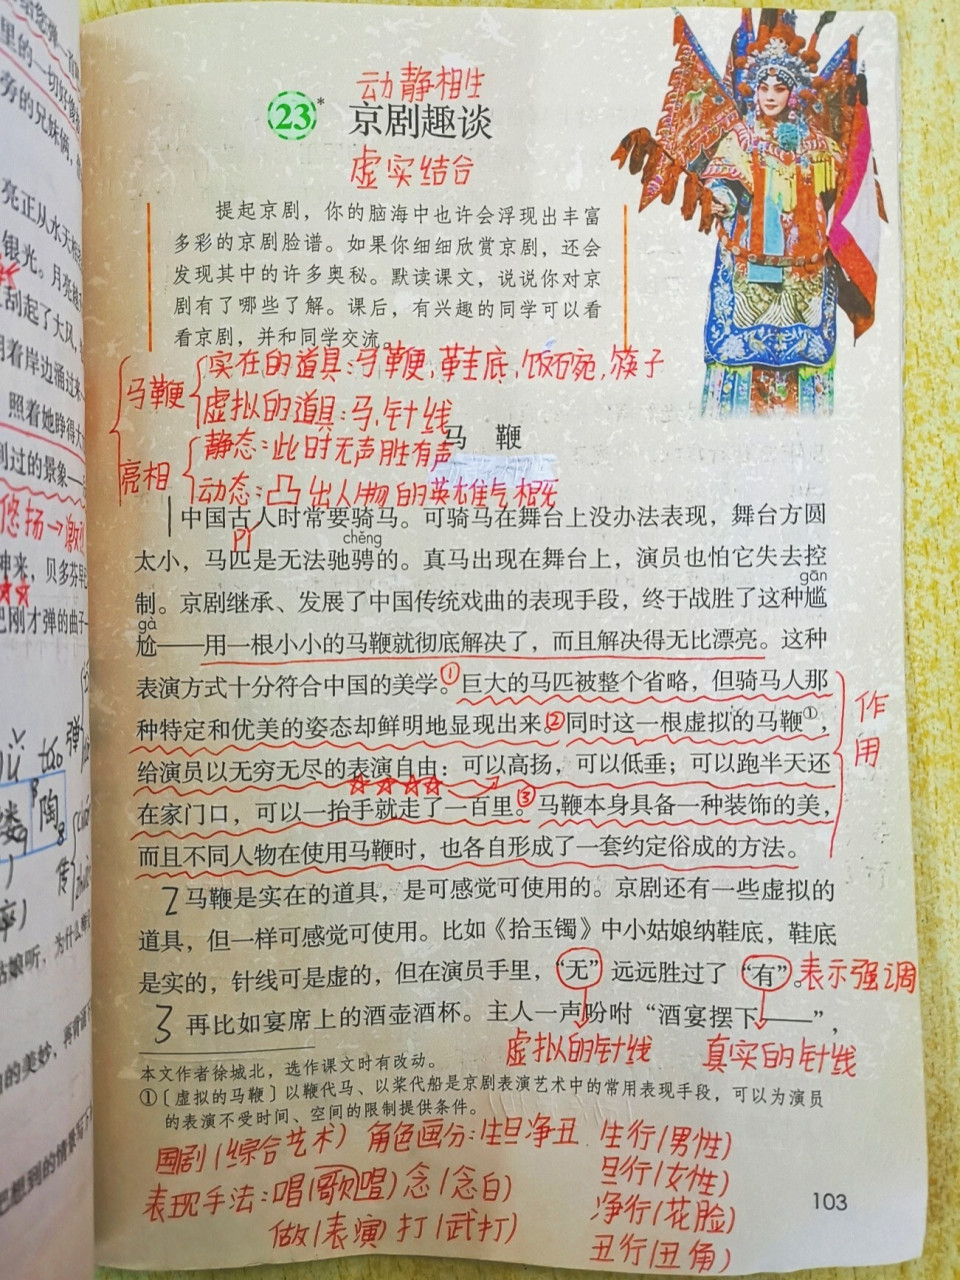 动静相生
23* 京剧趣谈
虚实结合
提起京剧，你的脑海中也许会浮现出丰富
多彩的京剧脸谱。如果你细细欣赏京剧，还会
发现其中的许多奥秘。默读课文，说说你对京
剧有了哪些了解。课后，有兴趣的同学可以看
看京剧，并和同学交流。
马鞭
实在的道具：马鞭，鞋底，饭碗，筷子
虚拟的道具：马，针线
亮相
静态：此时无声胜有声
动态：凸出人物的英雄气概
马 鞭
1 中国古人时常要骑马。可骑马在舞台上没办法表现，舞台方圆
pǐ chěng
太小，马匹是无法驰骋的。真马出现在舞台上，演员也怕它失去控
gān
制。京剧继承、发展了中国传统戏曲的表现手段，终于战胜了这种尴
gà
尬——用一根小小的马鞭就彻底解决了，而且解决得无比漂亮。这种
表演方式十分符合中国的美学。①巨大的马匹被整个省略，但骑马人那
种特定和优美的姿态却鲜明地显现出来。②同时这一根虚拟的马鞭①，
给演员以无穷无尽的表演自由：可以高扬，可以低垂；可以跑半天还
在家门口，可以一抬手就走了一百里。③马鞭本身具备一种装饰的美，
而且不同人物在使用马鞭时，也各自形成了一套约定俗成的方法。
作用
2 马鞭是实在的道具，是可感觉可使用的。京剧还有一些虚拟的
道具，但一样可感觉可使用。比如《拾玉镯》中小姑娘纳鞋底，鞋底
是实的，针线可是虚的，但在演员手里，“无”远远胜过了“有”。表示强调
3 再比如宴席上的酒壶酒杯。主人一声吩咐“酒宴摆下——”，
虚拟的针线 真实的针线
本文作者徐城北，选作课文时有改动。
①〔虚拟的马鞭〕以鞭代马、以桨代船是京剧表演艺术中的常用表现手段，可以为演员
的表演不受时间、空间的限制提供条件。
国剧(综合艺术) 角色画分：生旦净丑 生行(男性)
旦行(女性)
表现手法：唱(歌唱) 念(念白)
净行(花脸)
做(表演) 打(武打)
丑行(丑角)
103
里的一切好像
旁的兄妹俩，
亮正从水天相
银光。月亮越
刮起了大风，
着岸边涌过来
照着她睁得大
到过的景象——
悠扬→激
神来，贝多芬早
把刚才弹的曲子
弹
陶
传
姑娘听，为什么
的美妙，再背诵
把想到的情景写下